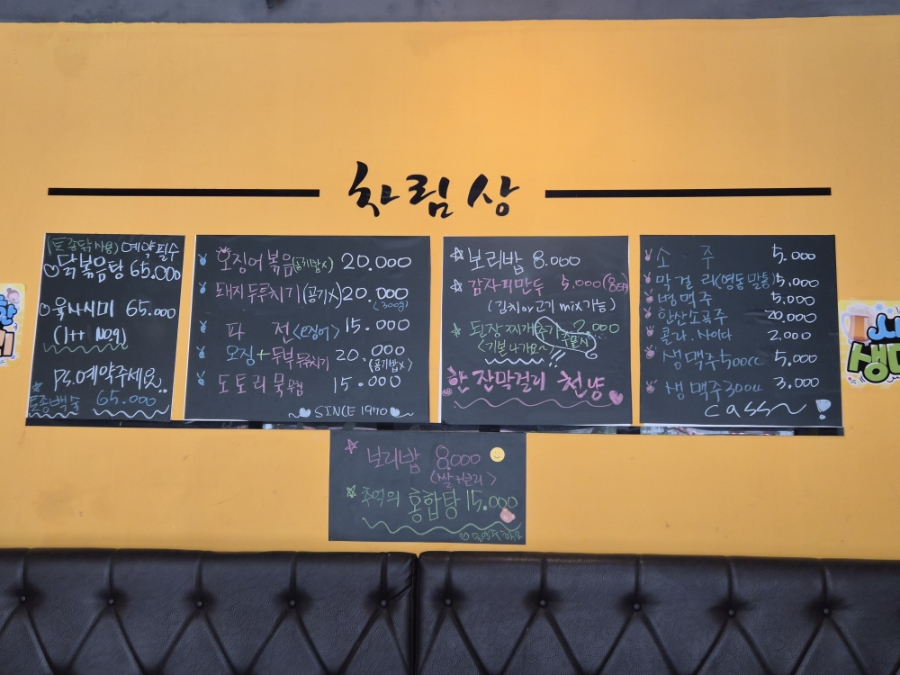 차림상
(토종닭 사용) 예약필수
닭볶음탕 65.000
육사시미 65.000
(1++ No.9)
Ps.예약주세요
토종백숙 65.000
오징어볶음(공기밥x) 20.000
돼지두루치기(공기x) 20.000
(300g)
파 전(오징어) 15.000
오징+두부두루치기 20.000
(공기밥x)
도토리묵무침 15.000
SINCE 1970
보리밥 8.000
감자피만두 5.000(8개)
(김치or고기 mix가능)
된장찌개 추가 2.000
(기본나가요~)
한잔막걸리 천냥
소 주 5.000
막걸리(영동 말통) 5.000
병맥주 5.000
한산소곡주 20,000
콜라.사이다 2.000
생맥주500cc 5.000
생맥주300cc 3.000
cass~!
보리밥 8.000
<쌀+보리>
추억의 홍합탕 15.000